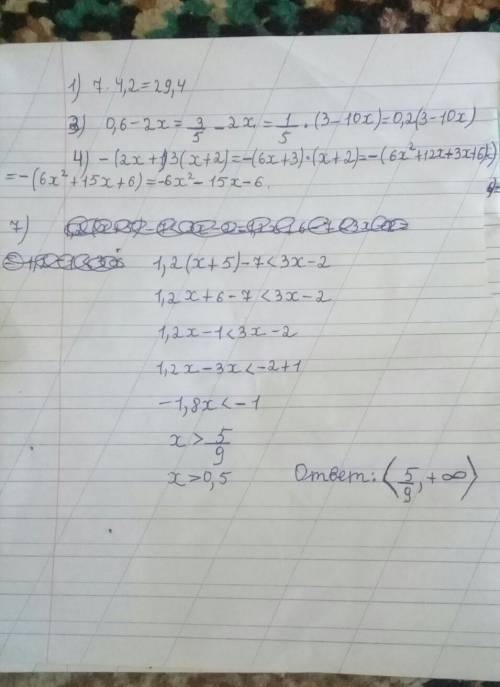 1) 7·4,2=29,4
3) 0,6-2x=3/5-2x=1/5·(3-10x)=0,2(3-10x)
4) -(2x+1)3(x+2)=-(6x+3)·(x+2)=-(6x²+12x+3x+6)=
=-(6x²+15x+6)=-6x²-15x-6.
7)
1,2(x+5)-7<3x-2
1,2x+6-7<3x-2
1,2x-1<3x-2
1,2x-3x<-2+1
-1,8x<-1
x>5/9
x>0,5 Ответ: (5/9,+∞)